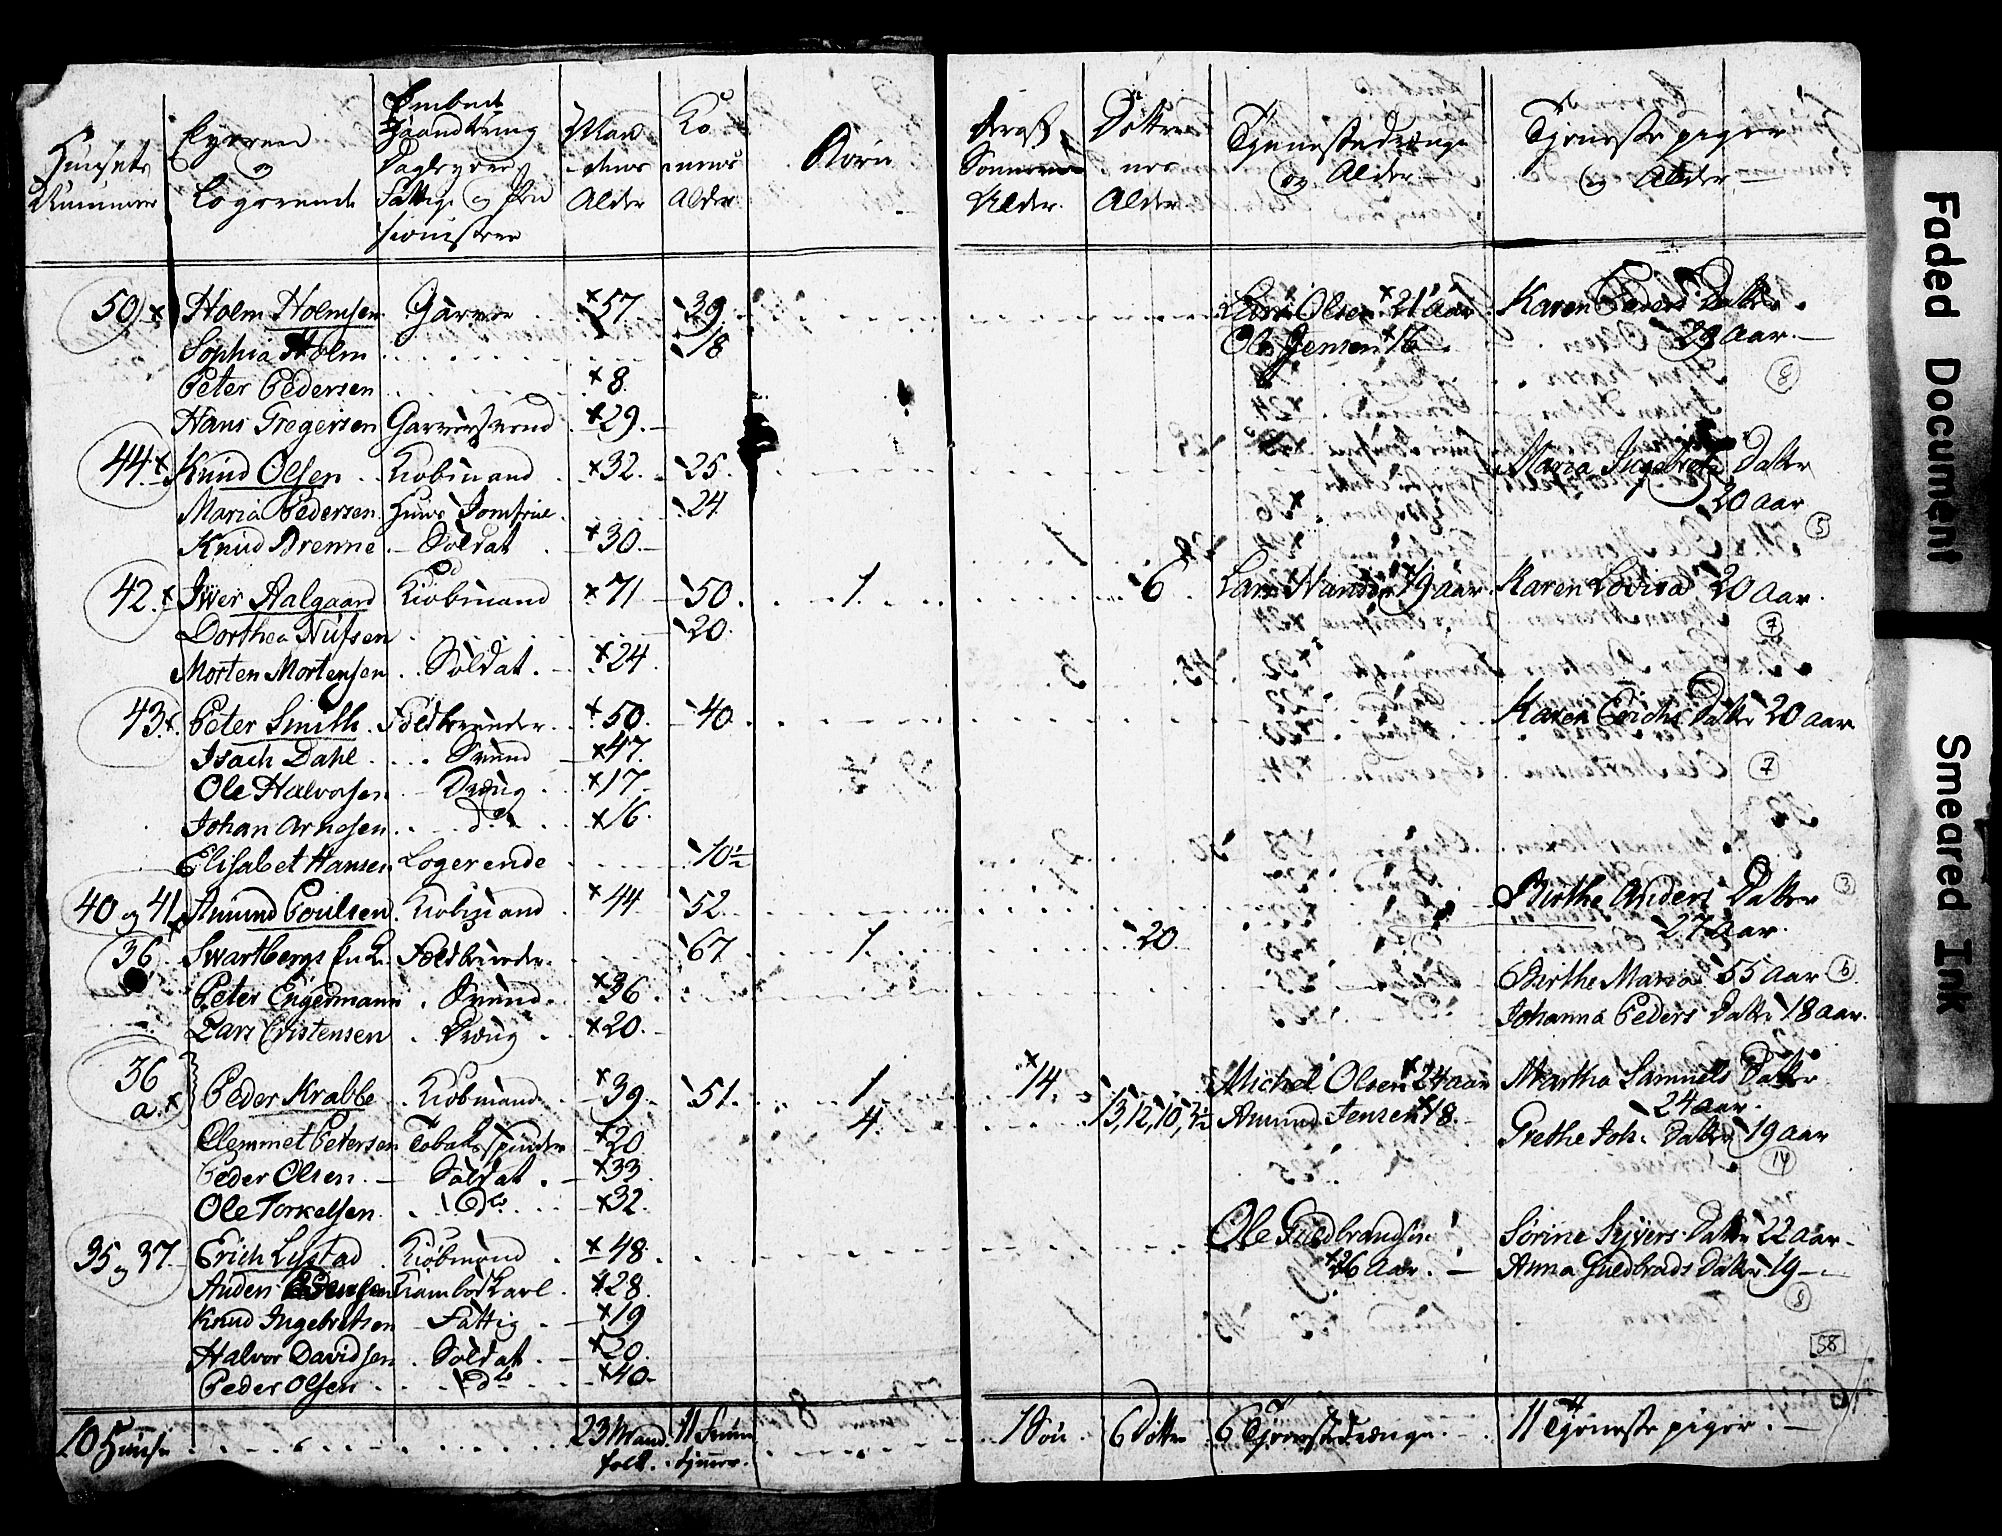 Huusets Nummer | Eyeren og Logerende | Embed Haandtering Daglejere Fattige og Pensionister | Mandens Alder | Konens Alder | Børn | deraf Sønnernes Alder | Døttrenes Alder | Tjenestedrenge og Alder | Tjeneste piger og Alder
50 Holm Holmsen Garver 57 39 Lars Olsen 21 aar Karen Peders Datter
Sophia Holm 18 Ole Jensen 16 29 aar
Peter Pedersen 8 (8)
Hans Gregersen Garversvend 29
44 Knud Olsen Kiøbmand 32 25 Maria Ingebrets Datter
Maria Pedersen Huus Jomfrue 24 20 aar
Knud Brenne Soldat 30 (5)
42 Iwer Aalgaard Kiøbmand 71 50 1 6 Lars Hansen 19 aar Karen Lovisa 20 aar
Dorthea Nilsen 20 (7)
Morten Mortensen Soldat 24
43 Peter Smith Feldbereder 50 40 Karen Erichs Datter 20 aar
Isach Dahl Svend 47
Ole Halvorsen Dreng 17 (7)
Johan Arnesen do 16
Elisabet Hansen Logerende 10½
40 og 41 Amund Poulsen Kiøbmand 44 52 Birthe Anders Datter (3)
27 aar
36 Swartbergs Enke Feldbereder 67 1 20
Peter Engermann Svend 36 Birthe Maria 55 aar (6)
Lars Cristensen Dreng 20 Johanna Peders Datter 18 aar
36 a Peder Krabbe Kiøbmand 39 51 1 14 Michel Olsen 24 aar Martha Samuels Datter
24 aar
Clemmet Petersen Tobakspinder 20 4 13, 12, 10, 3½ Amund Jensen 18 Grethe Joh: Datter 19 aar
Peder Olsen Soldat 33 (14)
Ole Torkelsen do 32
35 og 37 Erich Lystad Kiøbmand 48 Ole Guldbrandsen Sørine Syvers Datter 22 aar
26 Aar
Anders Krambod Karl 28 Anna Guldbrads Datter 19
Knud Ingebretsen Fattig 19 (8)
Halvor Davidsen Soldat 20 58
Peder Olsen do 40
10 Huuse 23 Mandfolk 11 Fruentimmer 8 1 Søn 6 Døttre 6 Tjenestedrenge 11 Tjeneste piger
Faded Document
Smeared Ink